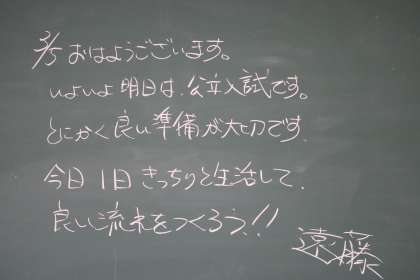 3/5 おはようございます。
いよいよ明日は、公立入試です。
とにかく良い準備が大切です。
今日1日きっちりと生活して、
良い流れをつくろう!!
遠藤